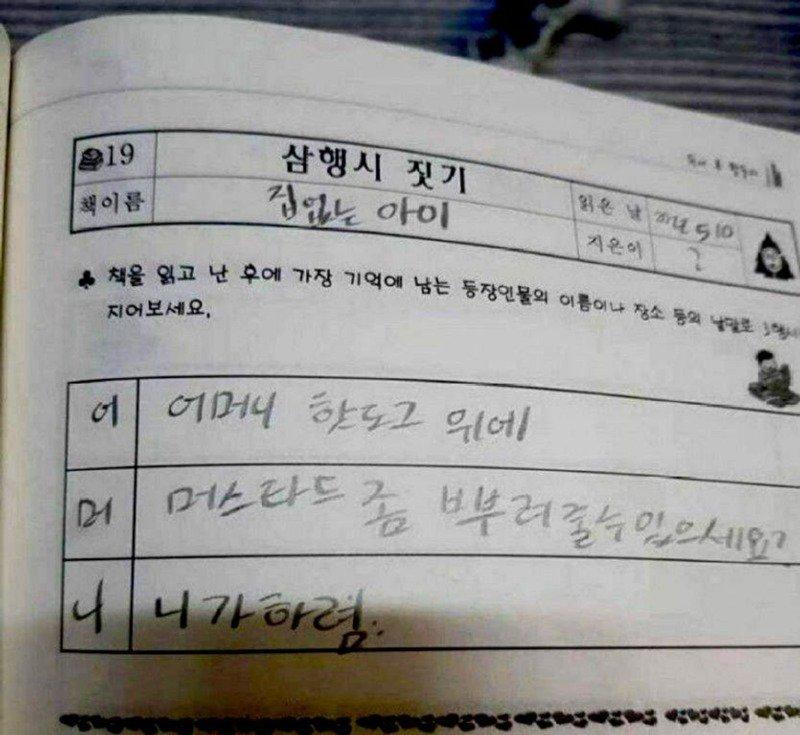 19 삼행시 짓기
책이름 집없는 아이 읽은 날 5 10
지은이 ?
♣ 책을 읽고 난 후에 가장 기억에 남는 등장인물의 이름이나 장소 등의 낱말로 3행시
지어보세요.
어 어머니 핫도그 위에
머 머스타드 좀 ㅂ부려줄수 있으세요?
니 니가하렴.